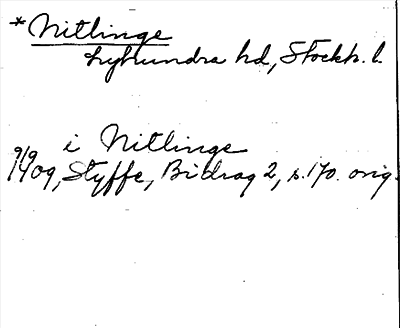 *Nitlinge
Lyhundra hd, Stockh. l.
i Nitlinge
9/9 1409, Styffe, Bidrag 2, s. 170. orig.